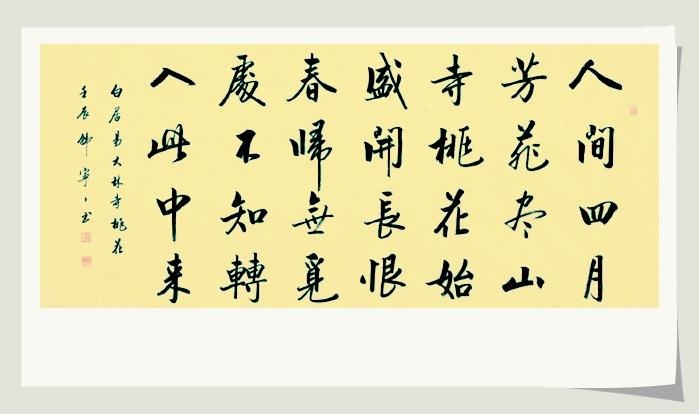 人間四月
芳菲尽山
寺桃花始
盛開長恨
春歸無覓
處不知轉
入此中来
白居易大林寺桃花
壬辰寧书